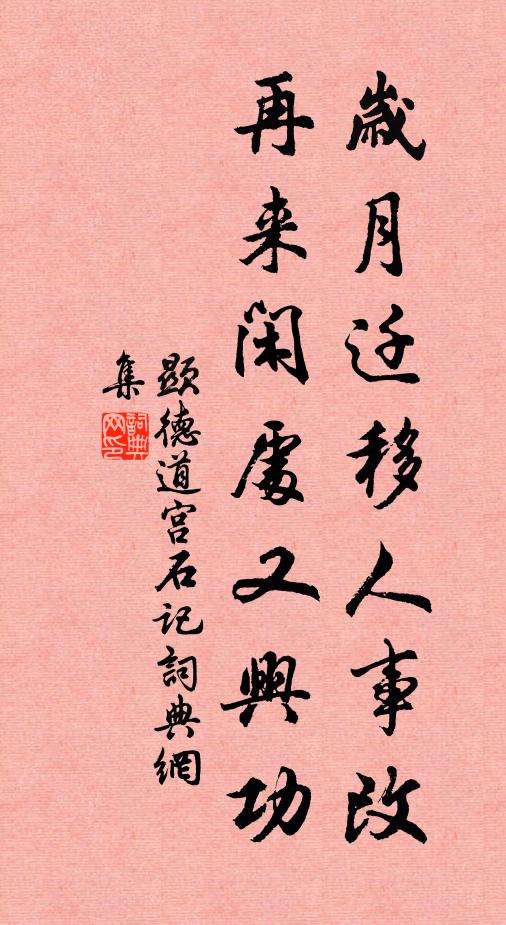 歲月迁移人事改
再来閑處又興功
顯德道宫石記詞典網
集
詞典
网印